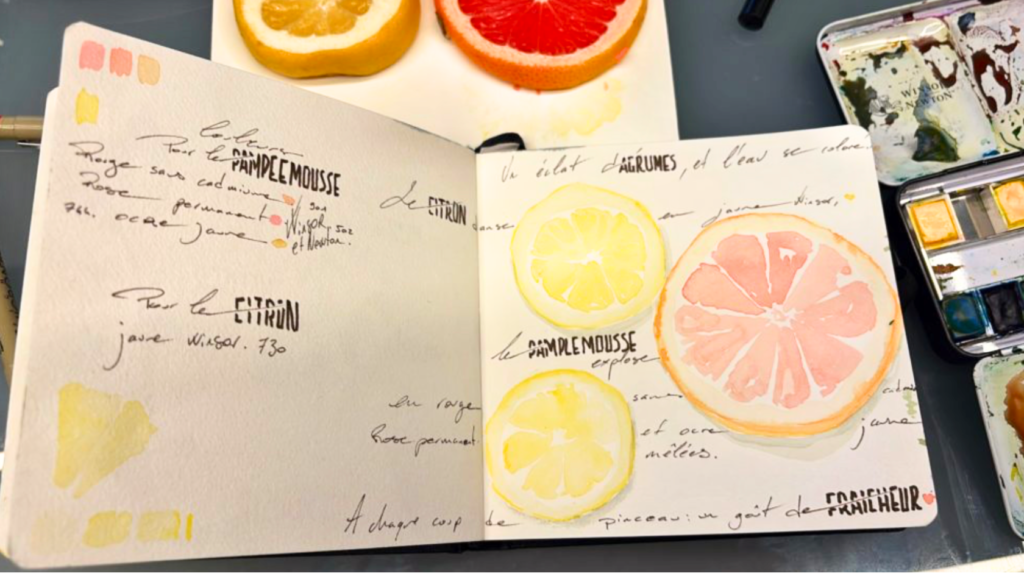 couleurs
Pour le PAMPLEMOUSSE
Rouge sans cadmium
Rose permanent
744. ocre jaune
Winsor
et Newton.
Pour le CITRON
jaune Winsor. 730
Un éclat d'AGRUMES, et l'eau se colore.
Le CITRON danse en jaune Winsor,
le PAMPLEMOUSSE
explose
en rouge sans cadmium
Rose permanent et ocre jaune
mêlées.
A chaque coup de pinceau: un goût de FRAICHEUR
WINSOR
& NEWTON